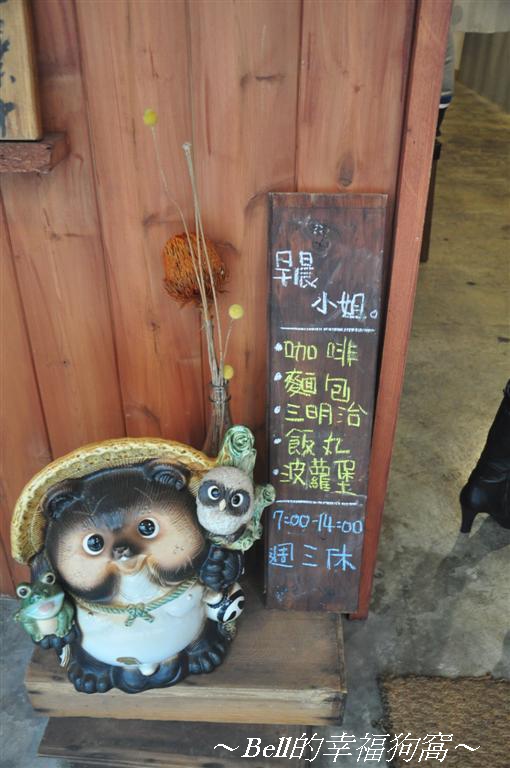 早晨
小姐。
·咖啡
·麵包
·三明治
·飯丸
·波蘿堡
7:00-14:00
週三休
~Bell的幸福狗窩~